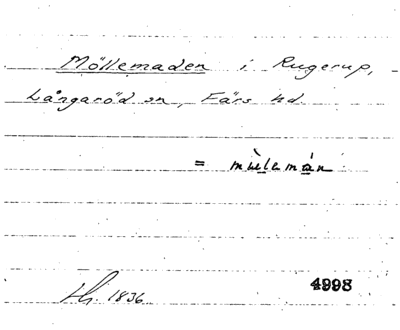 Möllemaden i Rugerup,
Långaröd sn, Färs hd.
= mùelemán
Hi. 1836
4998